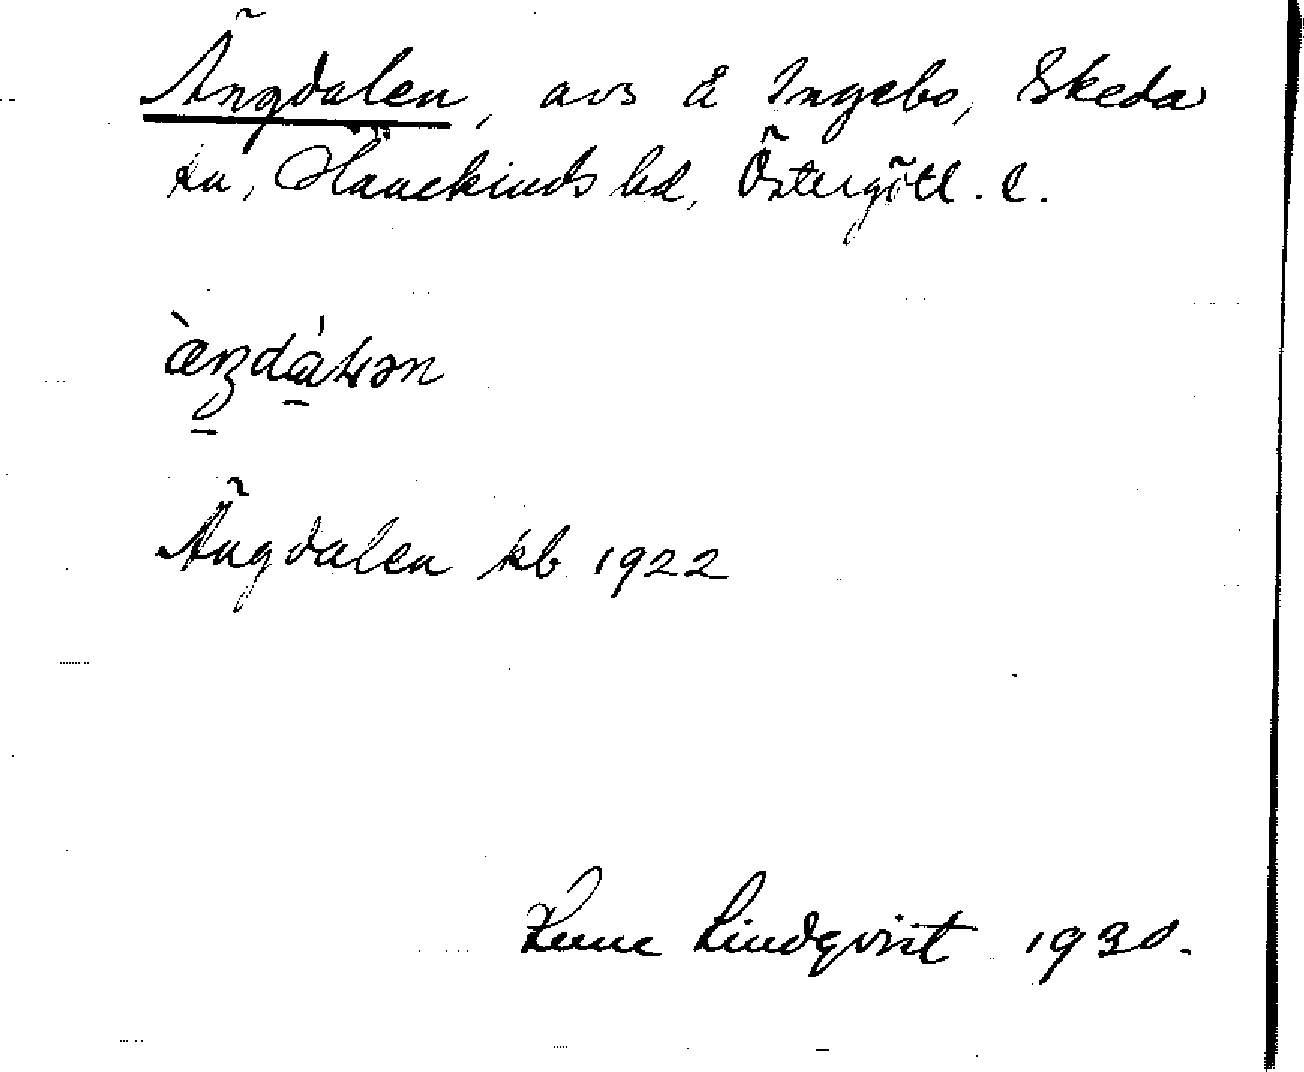 Ängdalen, avs å Ingebo, Skeda
sn, Hanekinds hd, Östergötl. l.
Ängdalen kb 1922
Rune Lindqvist 1930.